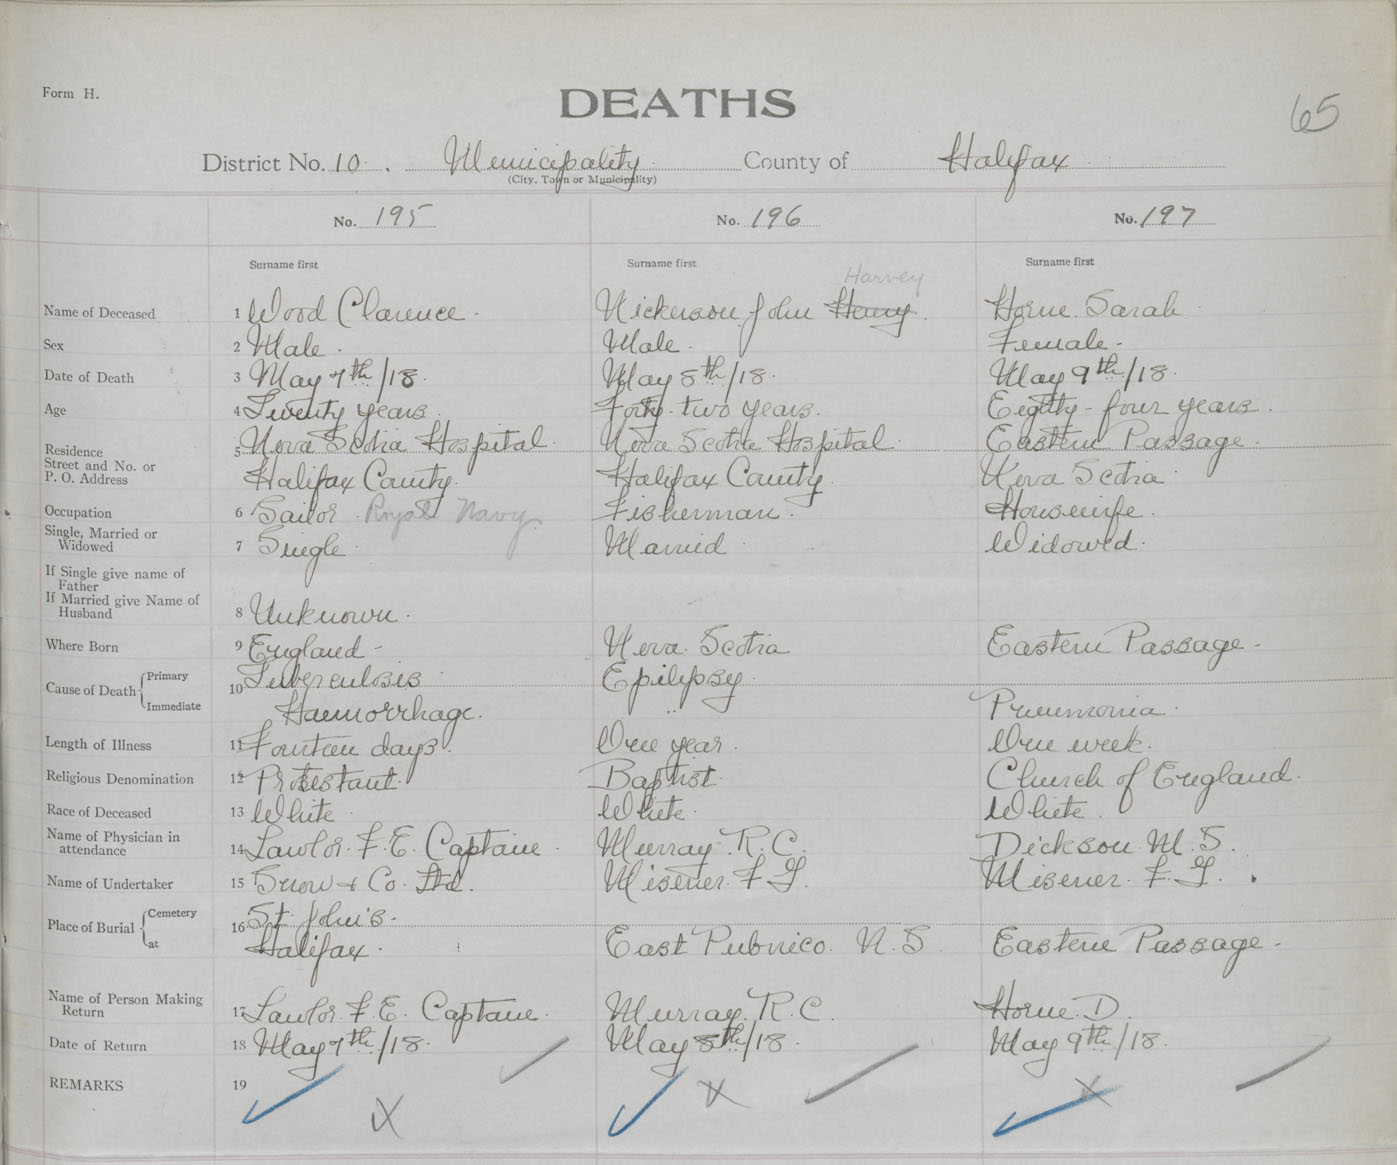 Form H.
DEATHS
65
District No. 10. Municipality County of Halifax
(City, Town or Municipality)
No. 195 No. 196 No. 197
Surname first Surname first Surname first
Harvey
Name of Deceased 1 Wood Clarence. Nickerson John Henry. Horne. Sarah
Sex 2 Male. Male. Female.
Date of Death 3 May 7th/18. May 8th/18. May 9th/18.
Age 4 Twenty years. Forty-two years. Eighty-four years.
Residence 5 Nova Scotia Hospital. Nova Scotia Hospital. Eastern Passage.
Street and No. or
P. O. Address Halifax County. Halifax County. Nova Scotia
Occupation 6 Sailor. Royal Navy. Fisherman. Housewife.
Single, Married or
Widowed 7 Single. Married. Widowed.
If Single give name of
Father
If Married give Name of
Husband 8 Unknown.
Where Born 9 England - Nova. Scotia Eastern Passage -
Cause of Death Primary 10 Tuberculosis Epilepsy.
Immediate Haemorrhage. " Pneumonia.
Length of Illness 11 Fourteen days. One year. One week.
Religious Denomination 12 Protestant. Baptist. Church of England.
Race of Deceased 13 White. White. White.
Name of Physician in
attendance 14 Lawlor. F. E. Captain. Murray. R. C. Dickson. M. S.
Name of Undertaker 15 Snow & Co. Ltd. Misener. F. G. Misener. F. G.
Place of Burial Cemetery 16 St. John's.
at Halifax. East Pubnico. N. S. Eastern Passage -
Name of Person Making
Return 17 Lawlor. F. E. Captain. Murray. R. C. Horne. D.
Date of Return 18 May 7th/18. May 8th/18. May 9th/18.
REMARKS 19
X X X